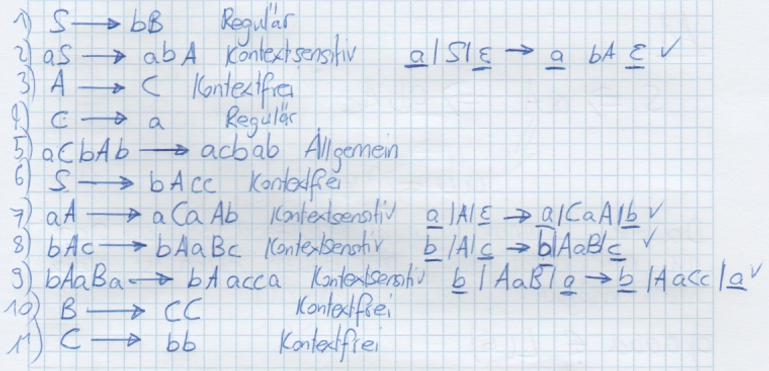 1) S → bB Regulär
2) aS → abA Kontextsensitiv a|S|ε → a bA ε ✓
3) A → C Kontextfrei
4) C → a Regulär
5) aCbAb → acbab Allgemein
6) S → bAcc Kontextfrei
7) aA → aCaAb Kontextsensitiv a|A|ε → a|CaA|b ✓
8) bAc → bAaBc Kontextsensitiv b|A|c → b|AaB|c ✓
9) bAaBa → bAacca Kontextsensitiv b|AaB|a → b|Aacc|a ✓
10) B → CC Kontextfrei
11) C → bb Kontextfrei